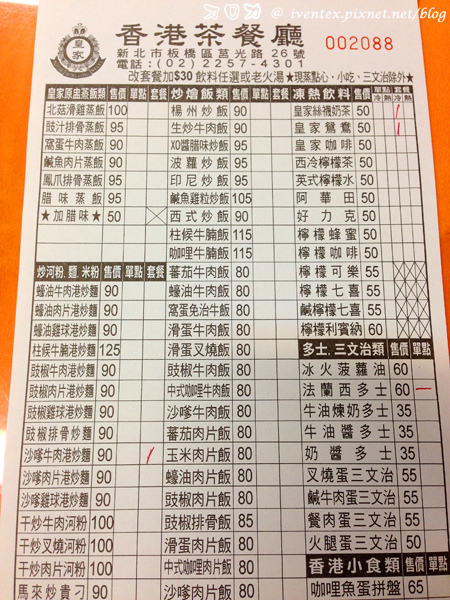 @ iventex.pixnet.net/blog
皇家
香港茶餐廳
002088
新北市板橋區莒光路26號
電話：(02) 2257-4301
改套餐加$30 飲料任選或老火湯★現蒸點心，小吃、三文治除外★
皇家原盅蒸飯類 售價 單點 套餐 炒燴飯類 售價 單點 套餐 凍熱飲料 售價 單點 冷 熱 套餐 冷 熱
北菇滑雞蒸飯 100 楊州炒飯 90 皇家絲襪奶茶 50 /
豉汁排骨蒸飯 95 生炒牛肉飯 90 皇家鴛鴦 50 /
窩蛋牛肉蒸飯 90 XO醬腊味炒飯 95 皇家咖啡 50
鹹魚肉片蒸飯 90 波蘿炒飯 95 西冷檸檬茶 50
鳳爪排骨蒸飯 95 印尼炒飯 95 英式檸檬水 50
腊味蒸飯 95 鹹魚雞粒炒飯 105 阿華田 50
★加腊味★ 50 西式炒飯 90 好力克 50
柱候牛腩飯 115 檸檬蜂蜜 50
咖哩牛腩飯 115 檸檬咖啡 50
炒河粉、麵、米粉 售價 單點 套餐 蕃茄牛肉飯 80 檸檬可樂 55
蠔油牛肉港炒麵 90 蠔油牛肉飯 80 檸檬七喜 55
蠔油肉片港炒麵 90 窩蛋免治牛飯 80 鹹檸檬七喜 55
蠔油雞球港炒麵 90 滑蛋牛肉飯 80 檸檬利賓納 60
柱候牛腩港炒麵 125 滑蛋叉燒飯 80 多士、三文治類 售價 單點
豉椒牛肉港炒麵 90 豉椒牛肉飯 80 冰火菠蘿油 60
豉椒肉片港炒麵 90 中式咖哩牛肉飯 80 法蘭西多士 60 一
豉椒雞球港炒麵 90 沙嗲牛肉飯 80 牛油煉奶多士 35
豉椒排骨炒麵 90 蕃茄肉片飯 80 牛油醬多士 35
沙嗲牛肉港炒麵 90 / 玉米肉片飯 80 奶醬多士 35
沙嗲肉片港炒麵 90 蠔油肉片飯 80 叉燒蛋三文治 55
沙嗲雞球港炒麵 90 豉椒肉片飯 80 鹹牛蛋三文治 55
干炒牛肉河粉 100 豉椒排骨飯 85 餐肉蛋三文治 55
干炒叉燒河粉 100 滑蛋肉片飯 80 火腿蛋三文治 55
干炒肉片河粉 100 中式咖哩肉片飯 80 香港小食類 售價 單點
馬來炒貴刁 90 沙嗲肉片飯 80 咖哩魚蛋拼盤 65